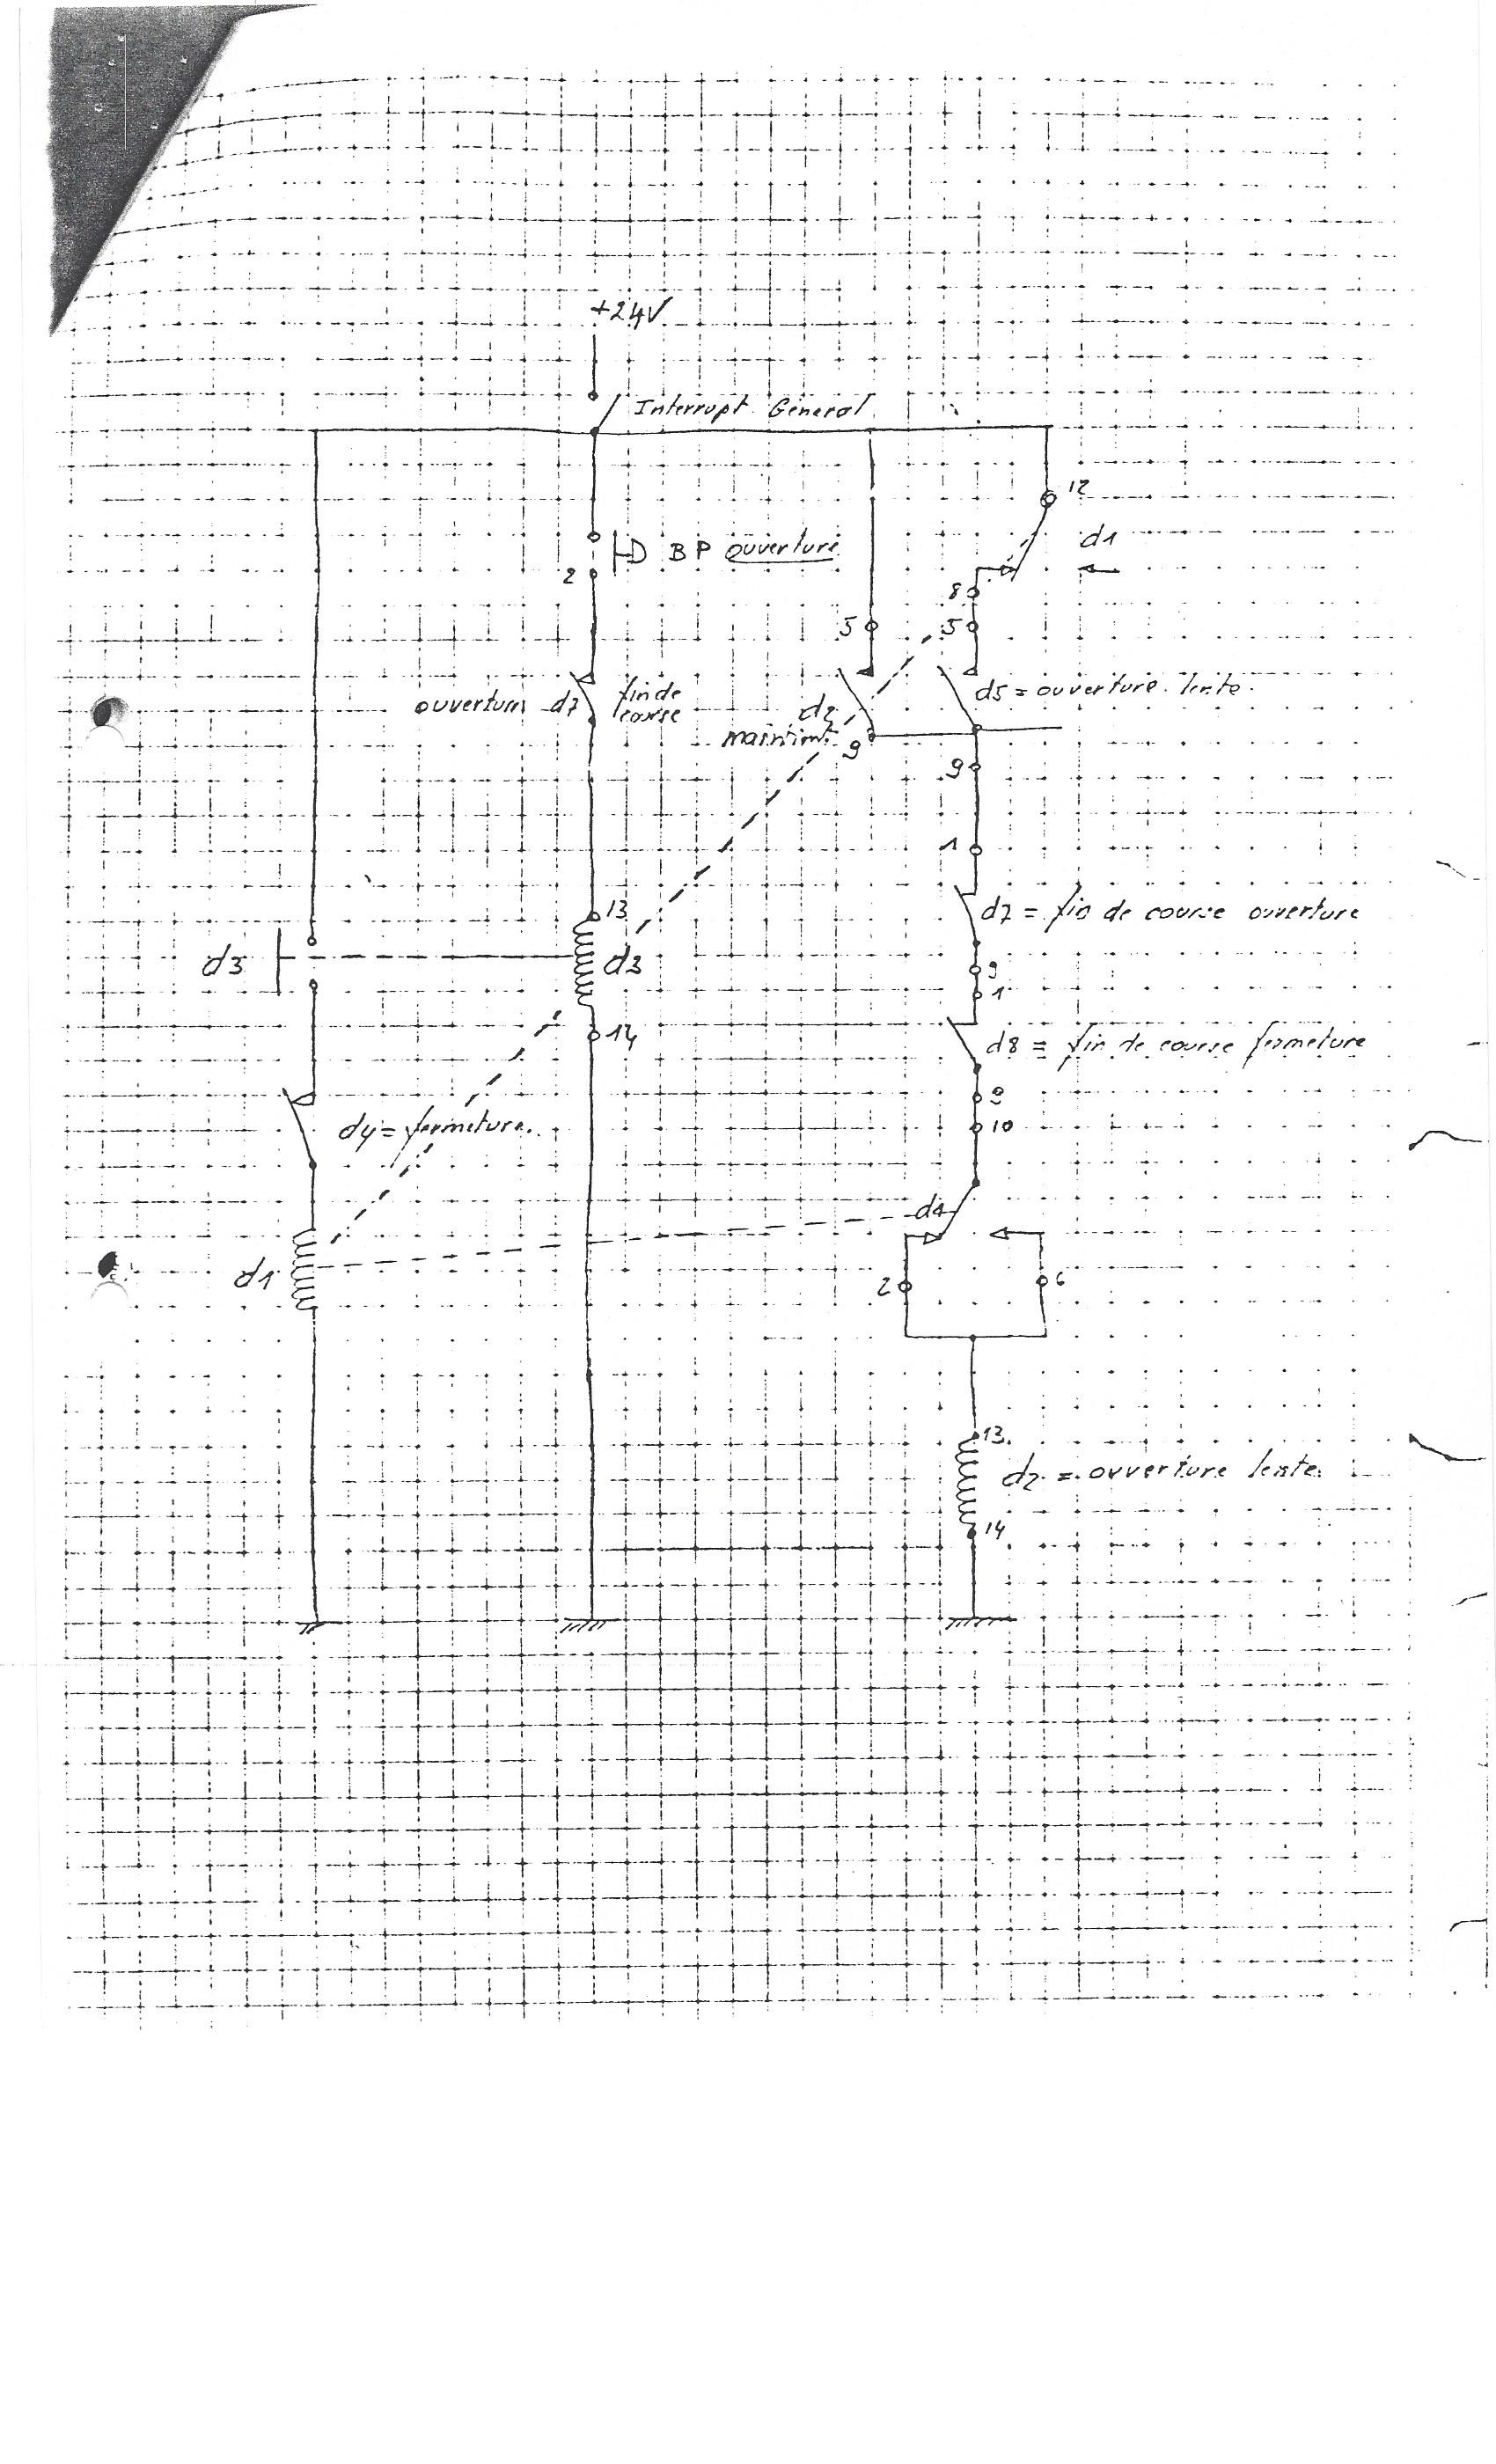 +24V
Interrupt Général
12
BP ouverture
d1
2
8
5
5
ouverture d7 fin de
course
d5 = ouverture lente
d2
maintient
9
9
1
13
d7 = fin de course ouverture
d3
d3
9
1
14
d8 = fin de course fermeture
9
10
d4 = fermeture
d1
d1
2
6
13
d2 = ouverture lente
14